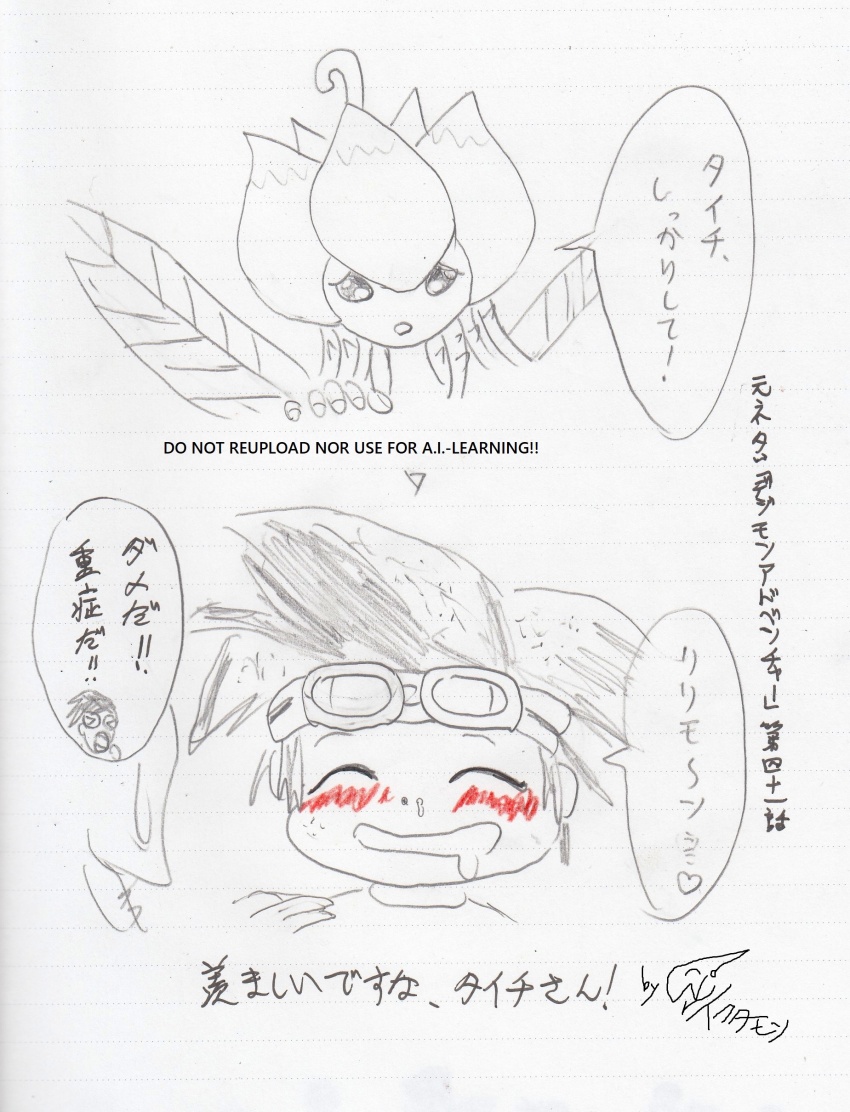 タイチ、
しっかりして！
元ネタ:デジモンアドベンチャー 第四十一話
DO NOT REUPLOAD NOR USE FOR A.I.-LEARNING!!
リリモ〜ン♡
ダメだ!!
重症だ!!
羨ましいですな、タイチさん！
by
イクタモン